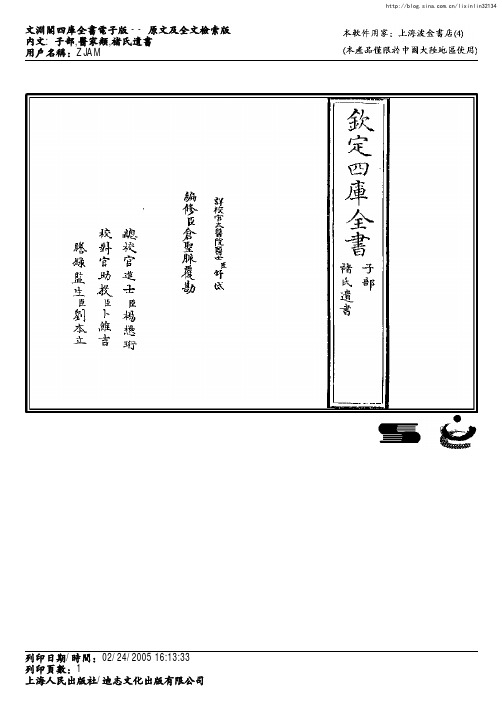 http://blog.sina.com.cn/lixinlin32134
文淵閣四庫全書電子版 -- 原文及全文檢索版
內文: 子部,醫家類,褚氏遺書
用戶名稱: ZJAM
本軟件用家: 上海波金書店(4)
(本產品僅限於中國大陸地區使用)
欽定四庫全書
子部
褚氏遺書
詳校官太醫院醫士臣舒岱
編修臣倉聖脈覆勘
總校官進士臣楊懋珩
校對官助教臣卜維吉
謄錄監生臣劉本立
列印日期/時間: 02/24/2005 16:13:33
列印頁數: 1
上海人民出版社/迪志文化出版有限公司